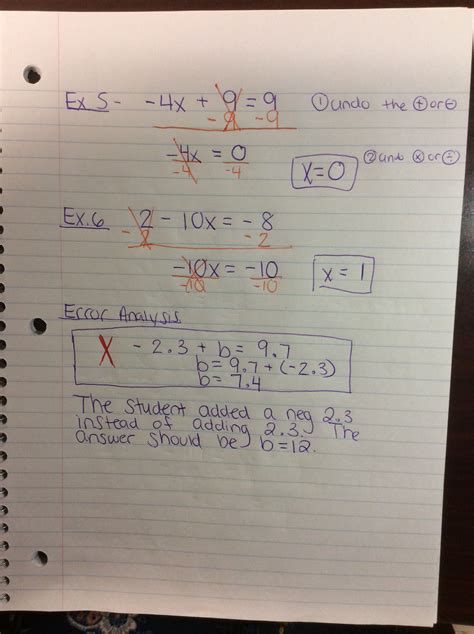 Ex 5 - -4x + 9 = 9 ① undo the ⊕ or ⊖
- 9 -9
-4x = 0 ② undo ⊗ or ⊕
-4 -4
x=0
Ex. 6 2 - 10x = - 8
- 2 - 2
-10x = -10
-10 -10
x = 1
Error Analysis
X - 2.3 + b = 9.7
b = 9.7 + (-2.3)
b = 7.4
The student added a neg 2.3
instead of adding 2.3. The
answer should be b=12.